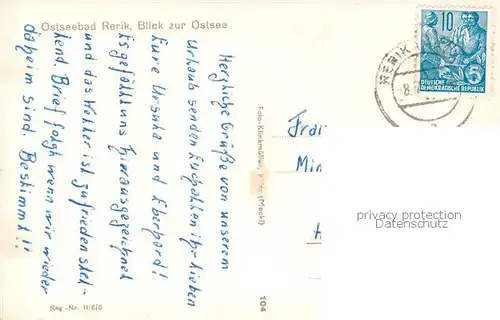 Ostseebad Rerik, Blick zur Ostsee
Herzliche Grüße von unserem
Urlaub senden Euch allen ihr lieben
Eure Ursula und Eberhard!
Es gefällt uns hier ausgezeichnet
und das Wetter ist zufrieden stel-
lend. Brief folgt wenn wir wieder
daheim sind. Bestimmt!!
Reg.-Nr. II/6/6
Foto-Klinkmüller, (Meckl)
104
10
DEUTSCHE
DEMOKRATISCHE REPUBLIK
RERIK
-8.
Min
privacy protection
DanskeAnkers.com